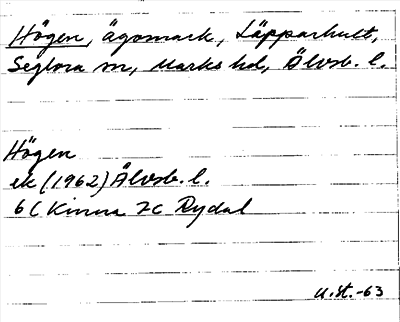 Högen, ägomark, Läpparhult,
Seglora sn, Marks hd, Älvsb. l.
Högen
ek (1962) Älvsb. l.
6C Kinna 7C Rydal
U.st. -63